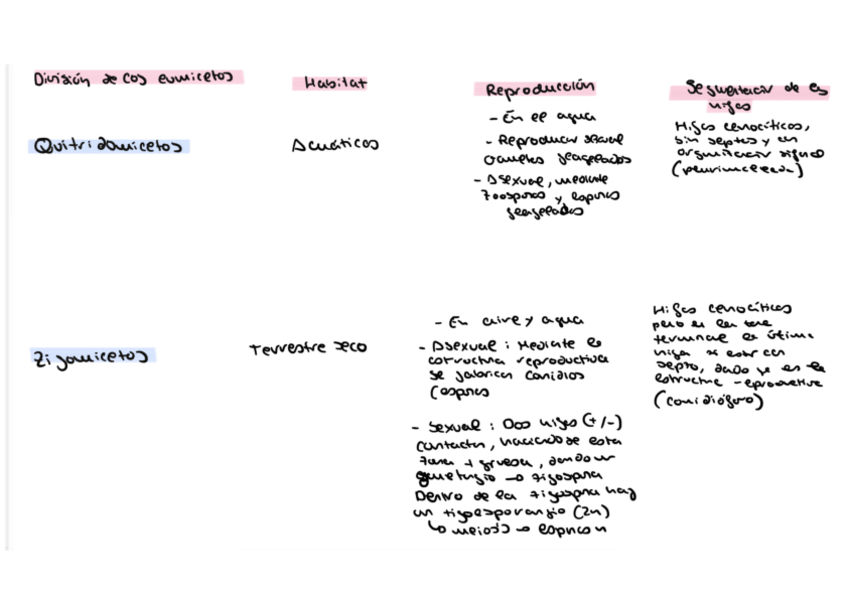 División de los eumicetos
Habitat
Reproducción
Segmentación de las
hifas
Quitridiomicetos
Acuáticos
- En el agua
- Reproducción sexual
Gametos flagelados
- Asexual, mediante
zoosporas y esporas
flageladas
Hifas cenocíticas,
sin septos y en
organización
Zigomicetos
Terrestre seco
- En aire y agua
- Asexual: Mediante la
estructura reproductiva
se fabrican conidios
(esporas
- Sexual: Dos hifas (+/-)
contactan, haciéndose esta
zona + gruesa, dando un
gametangio → zigospora
Dentro de la zigospora hay
un zigoesporangio (2n)
↳ meiosis → esporas n
Hifas cenocíticas
pero en la zona
terminal la última
hifa si está con
septo, dado que es la
estructura reproductiva
(conidióforo)